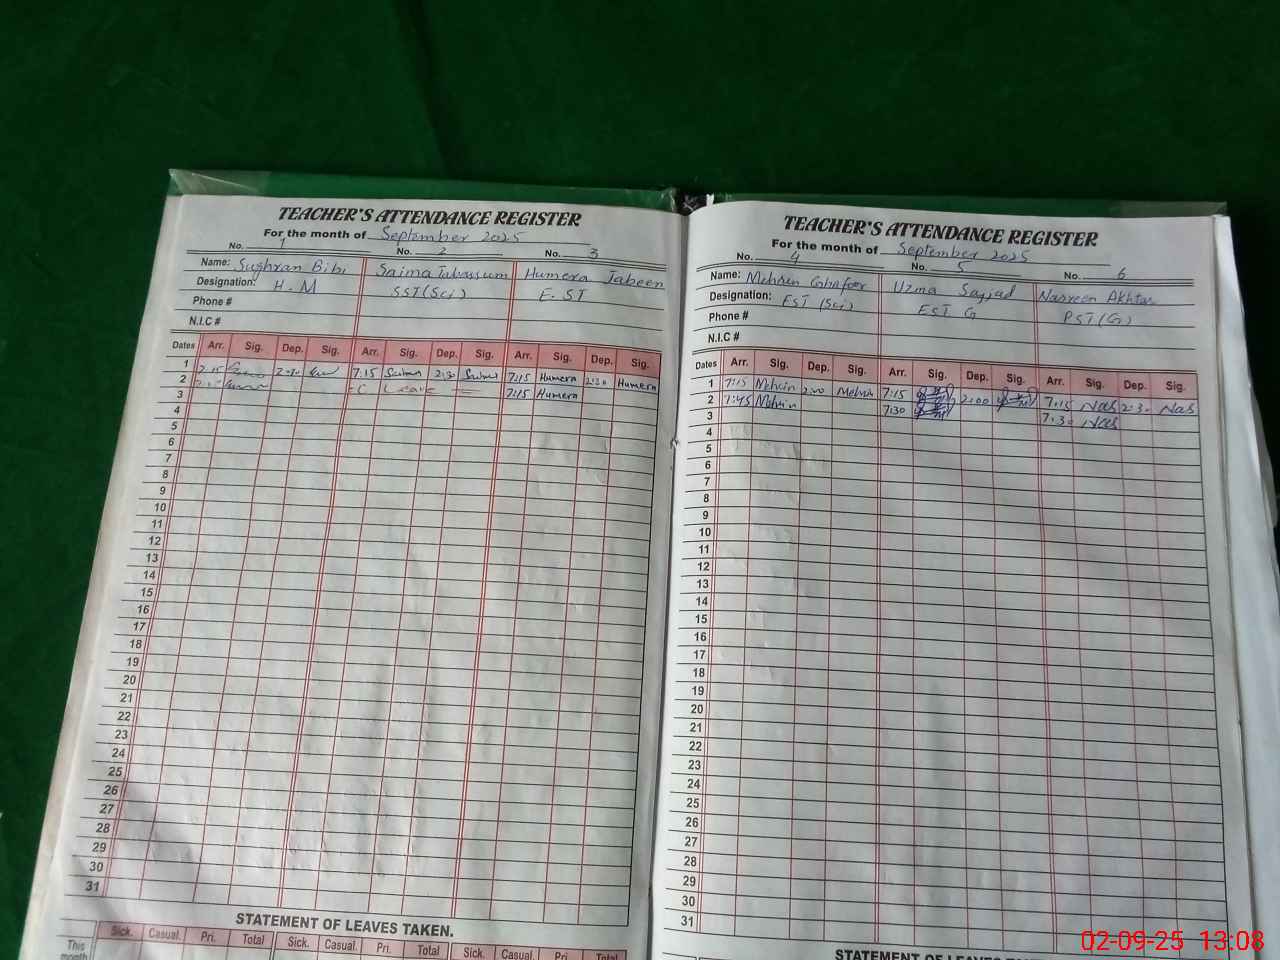 TEACHER'S ATTENDANCE REGISTER
For the month of September 2025
No. 1 No. 2 No. 3
Name: Sughran Bibi Saima Tabassum Humera Jabeen
Designation: H.M SST(Sci) E.ST
Phone #
N.I.C #
Dates Arr. Sig. Dep. Sig. Arr. Sig. Dep. Sig. Arr. Sig. Dep. Sig.
1 7:15 2:30 7:15 Saima 2:30 Saima 7:15 Humera 2:30 Humera
2 Leave 7:15 Humera
3
4
5
6
7
8
9
10
11
12
13
14
15
16
17
18
19
20
21
22
23
24
25
26
27
28
29
30
31
STATEMENT OF LEAVES TAKEN.
Sick. Casual. Pri. Total Sick. Casual. Pri. Total Sick. Casual. Pri. Total
This month
TEACHER'S ATTENDANCE REGISTER
For the month of September 2025
No. 4 No. 5 No. 6
Name: Mehren Ghafoor Uzma Sajjad Nasreen Akhtar
Designation: EST (Sci) EST G PST(G)
Phone #
N.I.C #
Dates Arr. Sig. Dep. Sig. Arr. Sig. Dep. Sig. Arr. Sig. Dep. Sig.
1 7:15 Mehrin 2:00 Mehrin 7:15 2:00 7:15 Nas 2:30 Nas
2 7:45 Mehrin 7:30 7:30 Nas
3
4
5
6
7
8
9
10
11
12
13
14
15
16
17
18
19
20
21
22
23
24
25
26
27
28
29
30
31
STATEMENT OF LEAVES
02-09-25 13:08